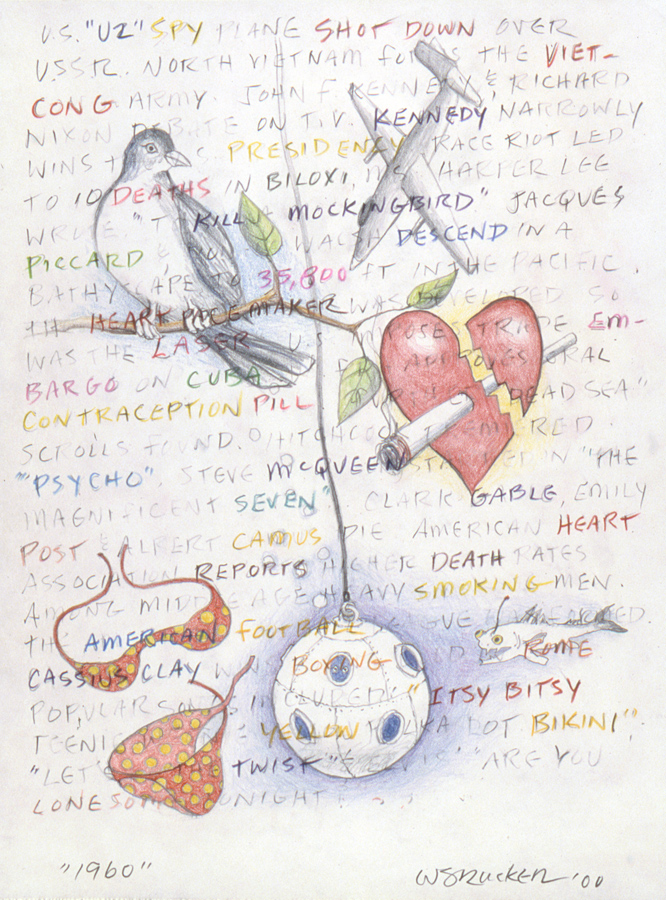 U.S. "U2" SPY PLANE SHOT DOWN OVER
USSR. NORTH VIETNAM FORMS THE VIET-
CONG ARMY. JOHN F. KENNEDY & RICHARD
NIXON DEBATE ON T.V. KENNEDY NARROWLY
WINS PRESIDENCY RACE RIOT LED
TO 10 DEATHS IN BILOXI, MS. HARPER LEE
WROTE "TO KILL A MOCKINGBIRD" JACQUES
PICCARD & WALSH DESCEND IN A
BATHYSCAPE TO 35,800 FT IN THE PACIFIC.
HEART PACEMAKER WAS DEVELOPED SO
WAS THE LASER U.S. EM-
BARGO ON CUBA ORAL
CONTRACEPTION PILL "DEAD SEA"
SCROLLS FOUND. HITCHCOCK
"PSYCHO". STEVE McQUEEN STARRED IN "THE
MAGNIFICENT SEVEN" CLARK GABLE, EMILY
POST & ALBERT CAMUS DIE AMERICAN HEART
ASSOCIATION REPORTS HIGHER DEATH RATES
AMONG MIDDLE AGE HEAVY SMOKING MEN.
THE AMERICAN FOOTBALL
CASSIUS CLAY WINS BOXING ROME
POPULAR SONGS INCLUDED "ITSY BITSY
TEENIE YELLOW POLKA DOT BIKINI",
"LET'S TWIST "ARE YOU
LONESOME TONIGHT
"1960"
WSRUCKER '00